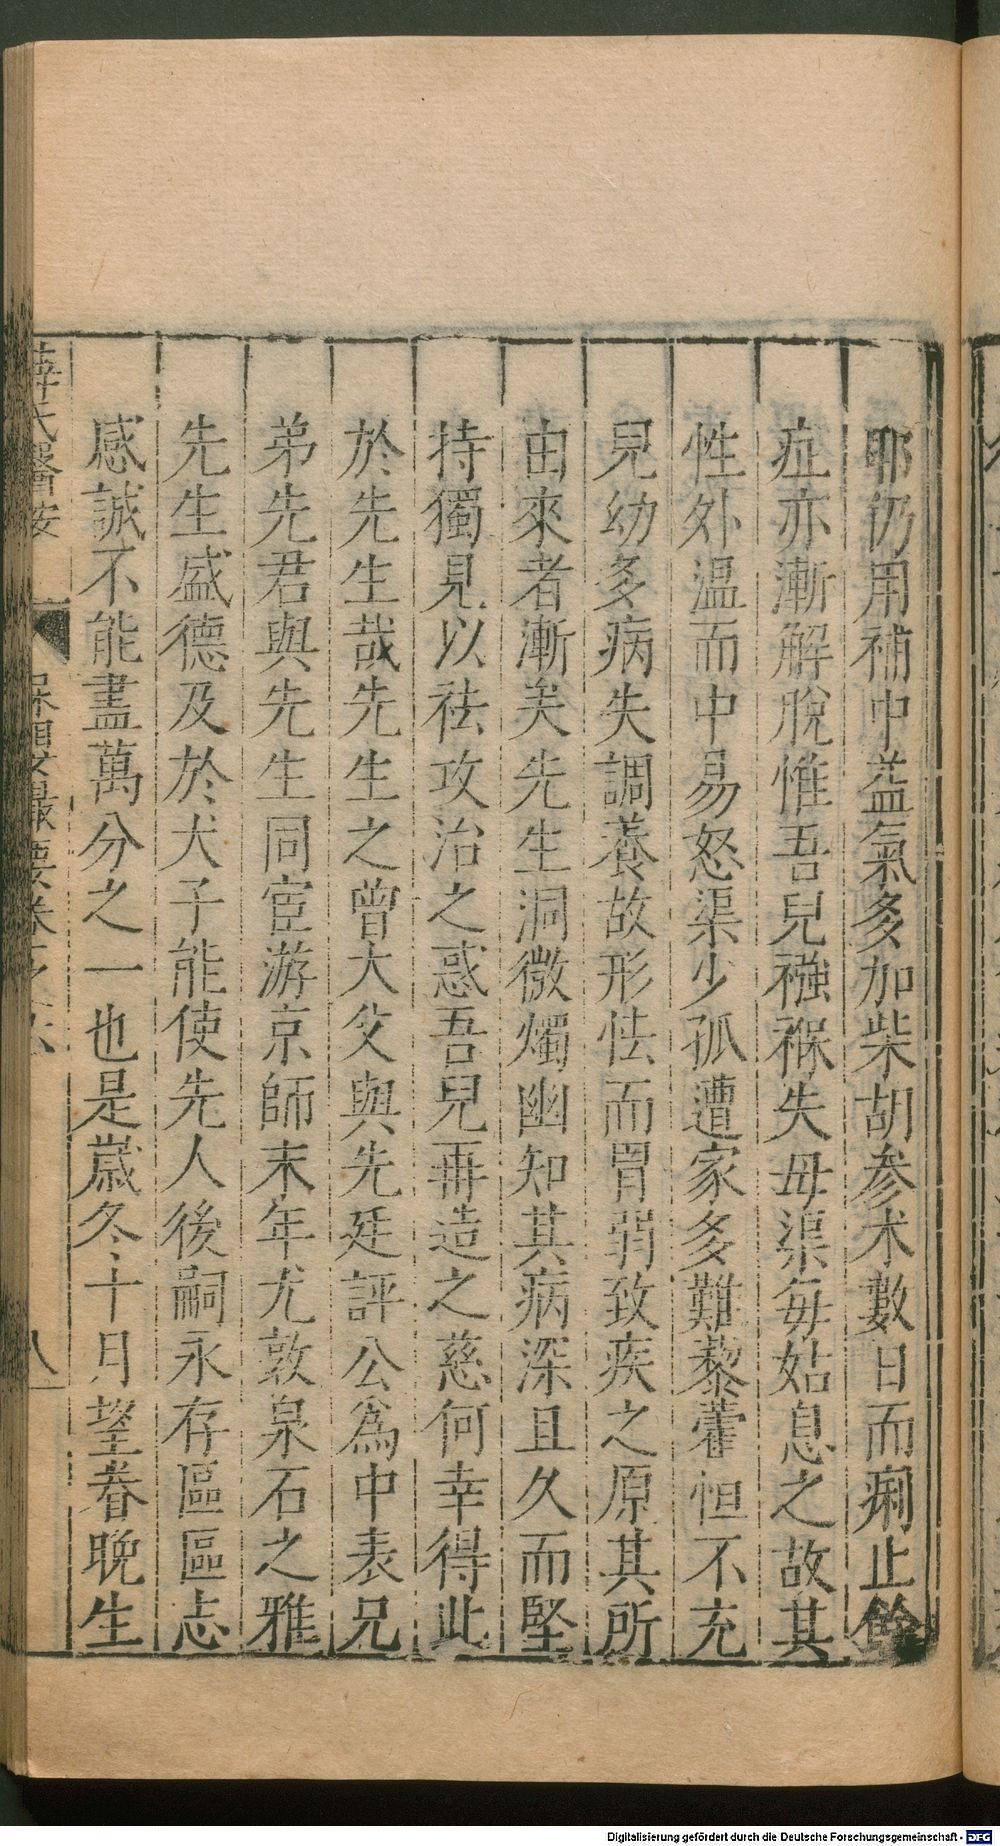 耶仍用補中益氣多加柴胡參术數日而痢止餘
症亦漸解脫惟吾兒襁褓失母渠每姑息之故其
性外溫而中易怒渠少孤遭家多難藜藿恒不充
兒幼多病失調養故形怯而胃弱致疾之原其所
由來者漸矣先生洞微燭幽知其病深且久而堅
持獨見以祛攻治之惑吾兒再造之慈何幸得此
於先生哉先生之曾大父與先廷評公爲中表兄
弟先君與先生同宦游京師末年尤敦泉石之雅
先生盛德及於犬子能使先人後嗣永存區區志
感誠不能盡萬分之一也是歲冬十月望眷晚生
薛氏醫按 保嬰撮要卷之六 八
Digitalisierung gefördert durch die Deutsche Forschungsgemeinschaft - DFG